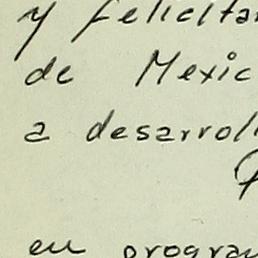 y felicitar
de Mexic
a desarroll
en program